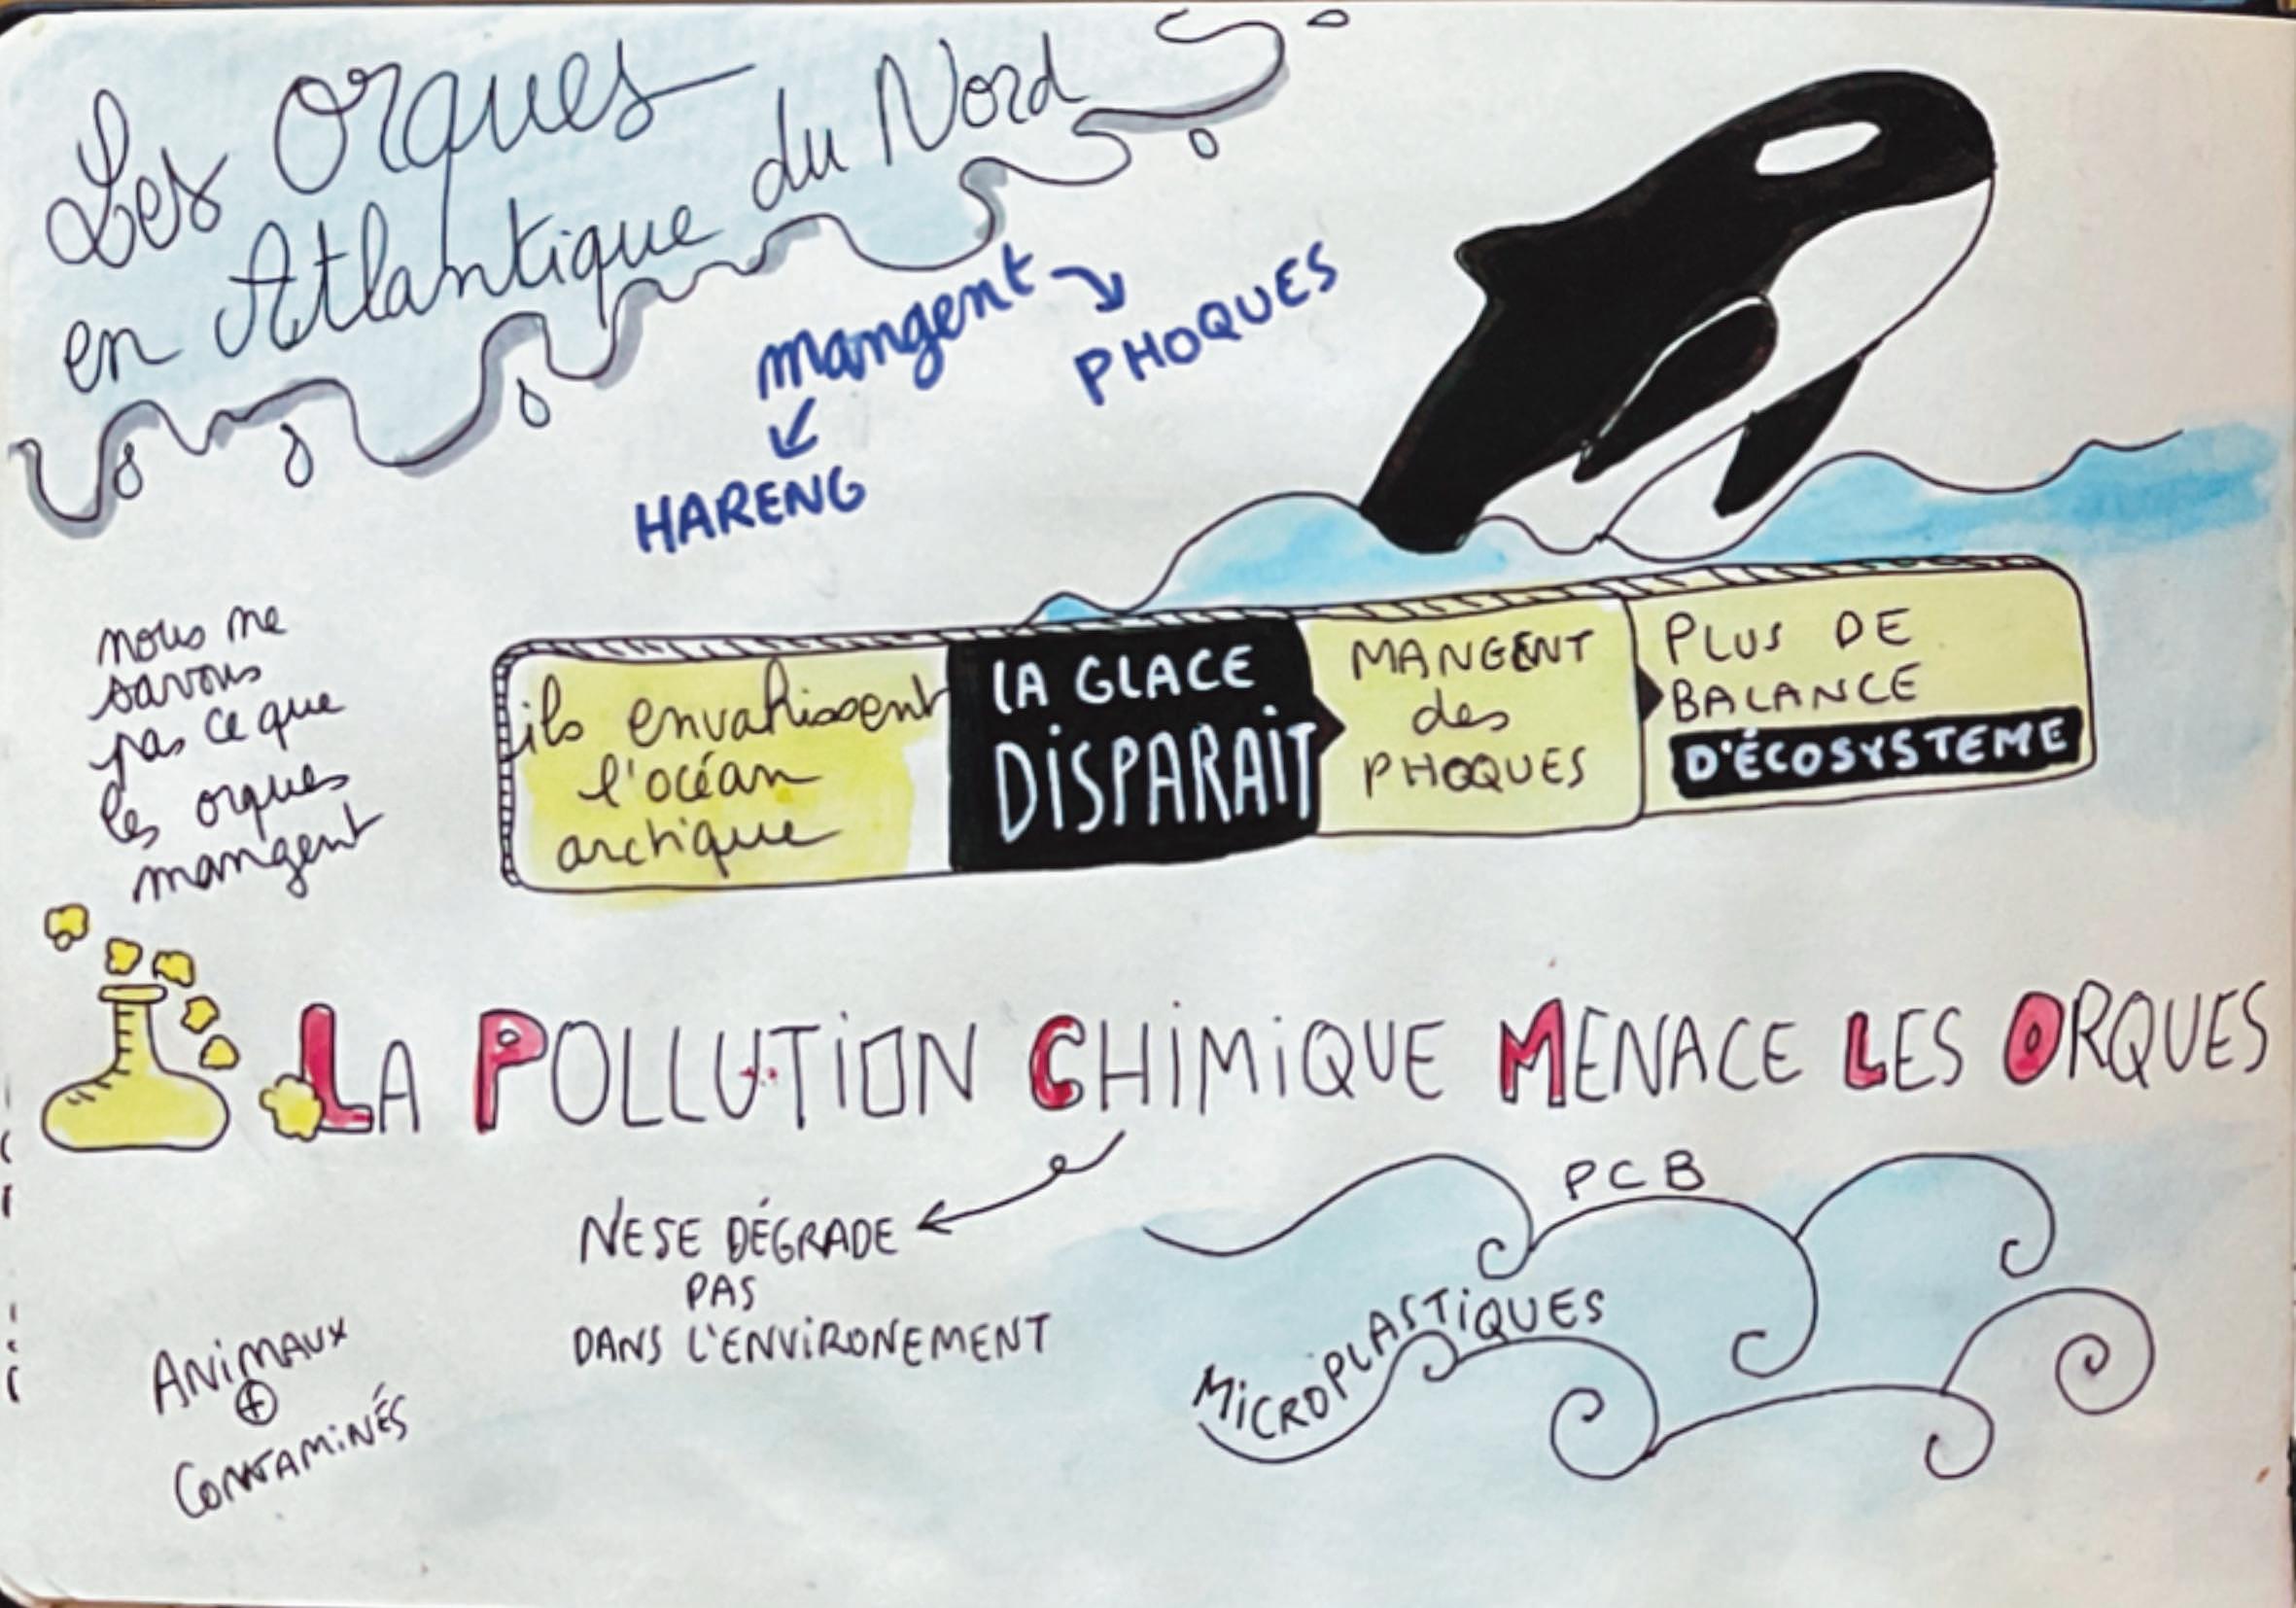 Les Orques
en Atlantique du Nord
mangent
PHOQUES
HARENG
nous ne
savons
pas ce que
les orques
mangent
ils envahissent
l'océan
arctique
LA GLACE
DISPARAIT
MANGENT
des
PHOQUES
PLUS DE
BALANCE
D'ÉCOSYSTEME
LA POLLUTION CHIMIQUE MENACE LES ORQUES
NE SE DÉGRADE
PAS
DANS L'ENVIRONEMENT
PCB
MICROPLASTIQUES
ANIMAUX
+
CONTAMINÉS